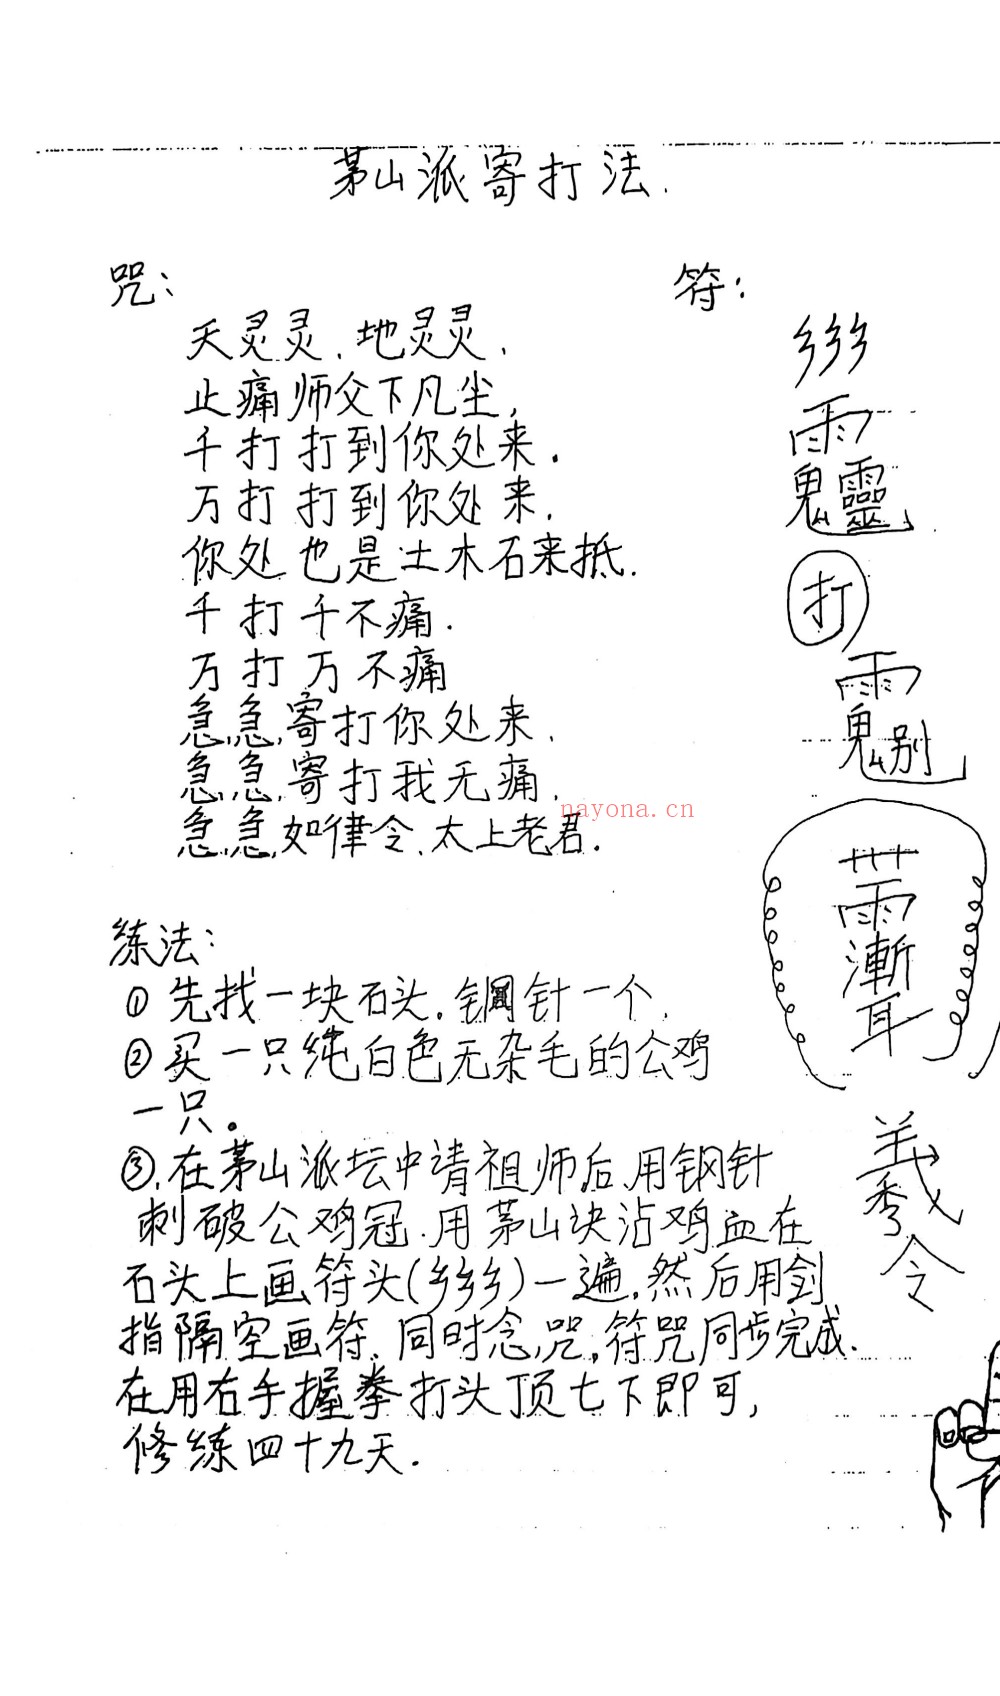 茅山派寄打法.
咒:
天灵灵.地灵灵.
止痛师父下凡尘,
千打打到你处来.
万打打到你处来.
你处也是土木石来抵.
千打千不痛.
万打万不痛
急,急,寄打你处来.
急,急,寄打我无痛.
急,急,如律令.太上老君.
符:
雨
鬼靈
打
雨
鬼别
雨
漸
耳
令
nayona.cn
练法:
①先找一块石头.钢针一个.
②买一只纯白色无杂毛的公鸡
一只。
③.在茅山派坛中请祖师后.用钢针
刺破公鸡冠.用茅山诀沾鸡血在
石头上画符头(乡乡乡)一遍.然后用剑
指隔空画符.同时念,咒,符咒同步完成.
在用右手握拳打头顶七下即可,
修练四十九天.